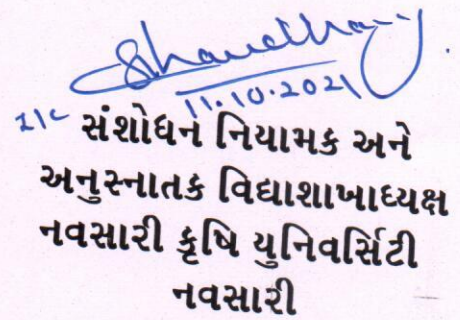 11.10.2021
I/c સંશોધન નિયામક અને
અનુસ્નાતક વિદ્યાશાખાધ્યક્ષ
નવસારી કૃષિ યુનિવર્સિટી
નવસારી